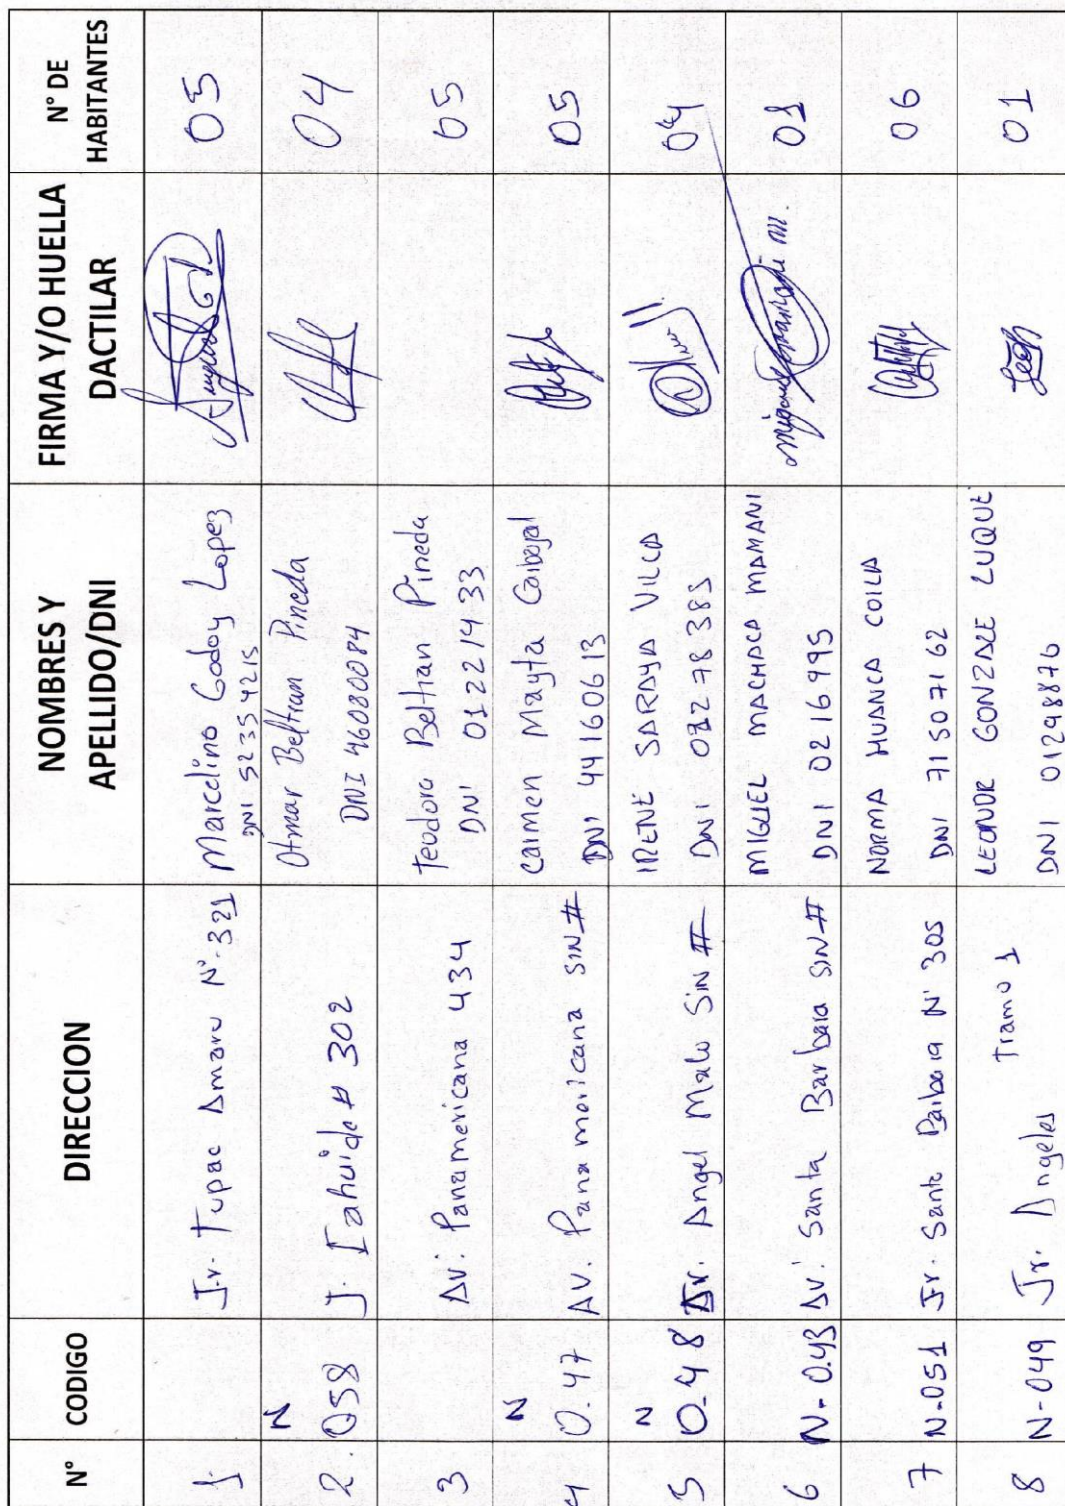 N° CODIGO DIRECCION NOMBRES Y APELLIDO/DNI FIRMA Y/O HUELLA DACTILAR N° DE HABITANTES
1. Jr. Tupac Amaru N°. 321 Marcelino Godoy Lopez 05
DNI 52354215
2. N 058 J. Cahuide # 302 Otmar Beltran Pineda 04
DNI 46080084
3 AV. Panamericana 434 Teodoro Beltran Pineda 05
DNI 01221433
4 N 0.47 AV. Panamoricana SIN # Carmen Mayta Caibajal 05
DNI 44160613
5 N 0.48 Jr. Angel Malo SiN # IRENE SARAYA VILCA 04
DNI 01278385
6 N-043 AV. Santa Barbara SIN # MIGUEL MACHACA MAMANI 01
DNI 0216995
7 N-051 Jr. Santa Barbara N° 305 NORMA HUANCA COILA 06
DNI 71507162
8 N-049 Jr. Angeles Tramo 1 LEONOR GONZALE LUQUE 01
DNI 01298876